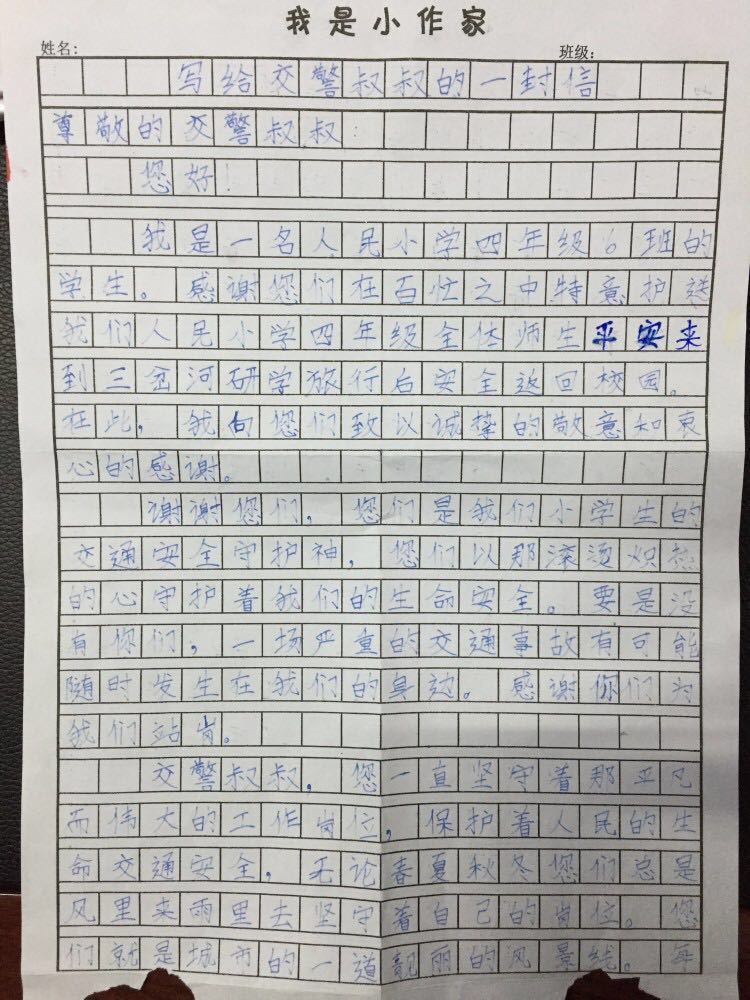 我是小作家
姓名： 班级：
写给交警叔叔的一封信
尊敬的交警叔叔：
您好！
我是一名人民小学四年级6班的
学生。感谢您们在百忙之中特意护送
我们人民小学四年级全体师生平安来
到三岔河研学旅行后安全返回校园。
在此，我向您们致以诚挚的敬意和衷
心的感谢。
谢谢您们，您们是我们小学生的
交通安全守护神，您们以那滚烫炽热
的心守护着我们的生命安全。要是没
有你们，一场严重的交通事故有可能
随时发生在我们的身边。感谢你们为
我们站岗。
交警叔叔，您一直坚守着那平凡
而伟大的工作岗位，保护着人民的生
命交通安全，无论春夏秋冬您们总是
风里来雨里去坚守着自己的岗位。您
们就是城市的一道靓丽的风景线。每